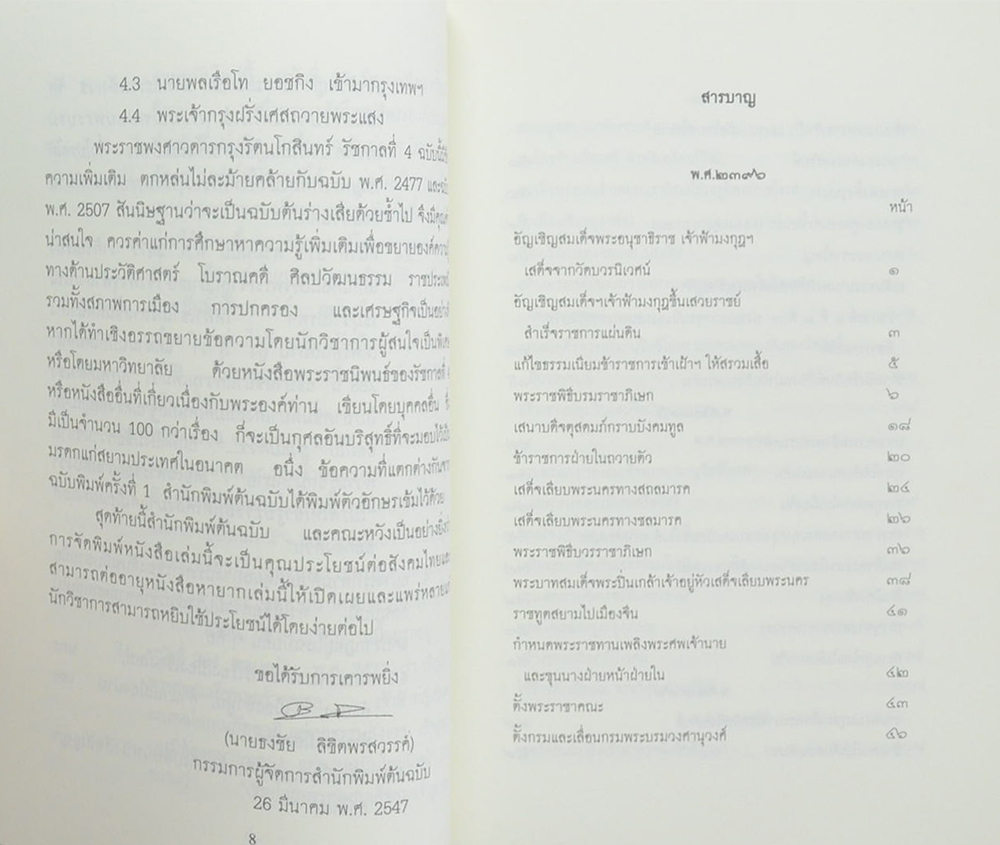 4.3 นายพลเรือโท ยอชกิง เข้ามากรุงเทพฯ
4.4 พระเจ้ากรุงฝรั่งเศสถวายพระแสง
พระราชพงศาวดารกรุงรัตนโกสินทร์ รัชกาลที่ 4
ความเพิ่มเติม ตกหล่นไม่ละม้ายคล้ายกับฉบับ พ.ศ. 2477
พ.ศ. 2507 สันนิษฐานว่าจะเป็นฉบับต้นร่างเสียด้วยซ้ำไป
น่าสนใจ ควรค่าแก่การศึกษาหาความรู้เพิ่มเติมเพื่อขยาย
ทางด้านประวัติศาสตร์ โบราณคดี ศิลปวัฒนธรรม
รวมทั้งสภาพการเมือง การปกครอง และเศรษฐกิจเป็น
หากได้ทำเชิงอรรถขยายข้อความโดยนักวิชาการผู้สนใจเป็น
หรือโดยมหาวิทยาลัย ด้วยหนังสือพระราชนิพนธ์ของรัชกาลที่
หรือหนังสืออื่นที่เกี่ยวเนื่องกับพระองค์ท่าน เขียนโดยบุคคลอื่น
มีเป็นจำนวน 100 กว่าเรื่อง ก็จะเป็นกุศลอันบริสุทธิ์ที่จะมอบ
มรดกแก่สยามประเทศในอนาคต อนึ่ง ข้อความที่แตกต่าง
ฉบับพิมพ์ครั้งที่ 1 สำนักพิมพ์ต้นฉบับได้พิมพ์ตัวอักษรเข้มไว้ด้วย
สุดท้ายนี้สำนักพิมพ์ต้นฉบับ และคณะหวังเป็นอย่างยิ่ง
การจัดพิมพ์หนังสือเล่มนี้จะเป็นคุณประโยชน์ต่อสังคมไทย
สามารถต่ออายุหนังสือหายากเล่มนี้ให้เปิดเผยและแพร่หลาย
นักวิชาการสามารถหยิบใช้ประโยชน์ได้โดยง่ายต่อไป
ขอได้รับการเคารพยิ่ง
(นายธงชัย ลิขิตพรสวรรค์)
กรรมการผู้จัดการสำนักพิมพ์ต้นฉบับ
26 มีนาคม พ.ศ. 2547
8
สารบาญ
พ.ศ.๒๓๙๖
หน้า
อัญเชิญสมเด็จพระอนุชาธิราช เจ้าฟ้ามงกุฎฯ
เสด็จจากวัดบวรนิเวศน์ ๑
อัญเชิญสมเด็จฯเจ้าฟ้ามงกุฎขึ้นเสวยราชย์
สำเร็จราชการแผ่นดิน ๓
แก้ไขธรรมเนียมข้าราชการเข้าเฝ้าฯ ให้สรวมเสื้อ ๕
พระราชพิธีบรมราชาภิเษก ๖
เสนาบดีจตุสดมภ์กราบบังคมทูล ๑๘
ข้าราชการฝ่ายในถวายตัว ๒๐
เสด็จเลียบพระนครทางสถลมารค ๒๔
เสด็จเลียบพระนครทางชลมารค ๒๖
พระราชพิธีบวรราชาภิเษก ๓๖
พระบาทสมเด็จพระปิ่นเกล้าเจ้าอยู่หัวเสด็จเลียบพระนคร ๓๘
ราชทูตสยามไปเมืองจีน ๔๑
กำหนดพระราชทานเพลิงพระศพเจ้านาย
และขุนนางฝ่ายหน้าฝ่ายใน ๔๒
ตั้งพระราชาคณะ ๔๓
ตั้งกรมและเลื่อนกรมพระบรมวงศานุวงศ์ ๔๖